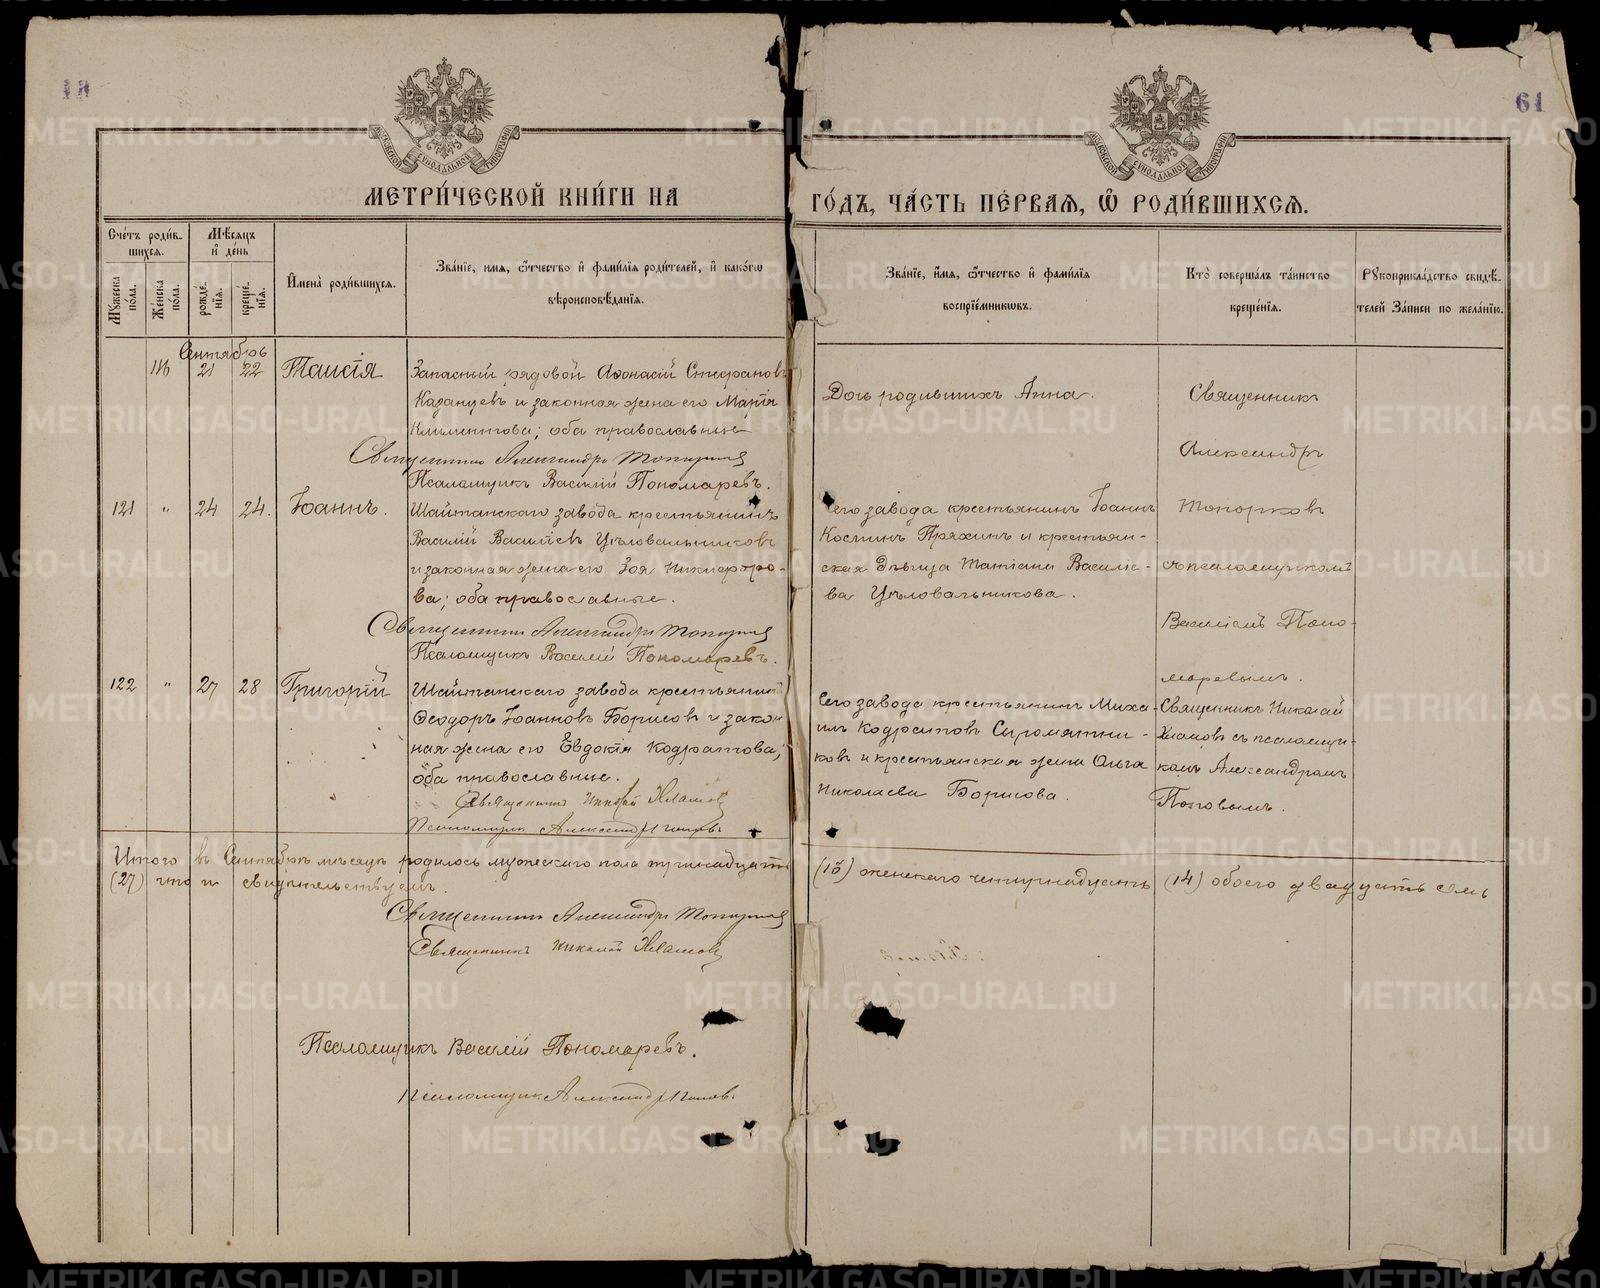 61
МОСКОВСКОЙ СѴНОДАЛЬНОЙ ТИПОГРАФІИ
МОСКОВСКОЙ СѴНОДАЛЬНОЙ ТИПОГРАФІИ
МЕТРИ́ЧЕСКОЙ КНИ́ГИ НА
ГО́ДЪ, ЧА́СТЬ ПЕ́РВАѦ, Ѽ РОДИ́ВШИХСѦ.
Сче́тъ роди́в-
шихсѧ.
Мꙋжеска по́ла.
Же́нска по́ла.
Мѣ́сѧцъ и де́нь
рожде́-нїѧ.
креще́-нїѧ.
Имена̀ роди́вшихсѧ.
Зва́нїе, имѧ, о́тчество и фами́лїѧ роди́телей, и како́гѡ
вѣроисповѣ́данїѧ.
Зва́нїе, имѧ, о́тчество и фами́лїѧ
воспрїе́мникѡвъ.
Кто̀ соверша́лъ та́инство
креще́нїѧ.
Рꙋкоприкла́дство свидѣ́-
телей за́писи по жела́нїю.
Сентябрь
116 21 22 Таисія
Запасный рядовой Аѳонасій Стефановъ
Казанцевъ и законная жена его Марія
Климентова; оба православные
Священникъ Александръ Топорковъ
Псаломщикъ Василій Пономаревъ.
Дочь родившихъ Анна.
Священникъ
Александръ
Топорковъ
съ псаломщикомъ
Василіемъ Поно-
маревымъ.
121 " 24 24. Іоаннъ.
Шайтанскаго завода крестьянинъ
Василій Василіевъ Цѣловальниковъ
и законная жена его Зоя Никифоро-
ва; оба православные.
Священникъ Александръ Топорковъ
Псаломщикъ Василій Пономаревъ.
Сего завода крестьянинъ Іоаннъ
Космин Пряхинъ и крестьян-
ская дѣвица Татіана Василіе-
ва Цѣловальникова.
122 " 27 28 Григорій
Шайтанскаго завода крестьянинъ
Ѳеодоръ Іоанновъ Борисовъ и закон
ная жена его Евдокія Кодратова;
оба православные.
Священникъ Николай Хламовъ
Псаломщикъ Александръ Поповъ.
Сего завода крестьянинъ Миха-
илъ Кодратовъ Сыромятни-
ковъ и крестьянская жена Ольга
Николаева Борисова.
Священникъ Николай
Хламовъ съ псаломщи-
комъ Александромъ
Поповымъ.
Итого въ Сентябрѣ мѣсяцѣ родилось мужескаго пола тринадцать (13) женскаго четырнадцать (14) обоего двадцать семь
(27) что и свидѣтельствуемъ.
Священникъ Александръ Топорковъ
Священникъ Николай Хламовъ
Псаломщикъ Василій Пономаревъ.
Псаломщикъ Александръ Поповъ.
METRIKI.GASO-URAL.RU